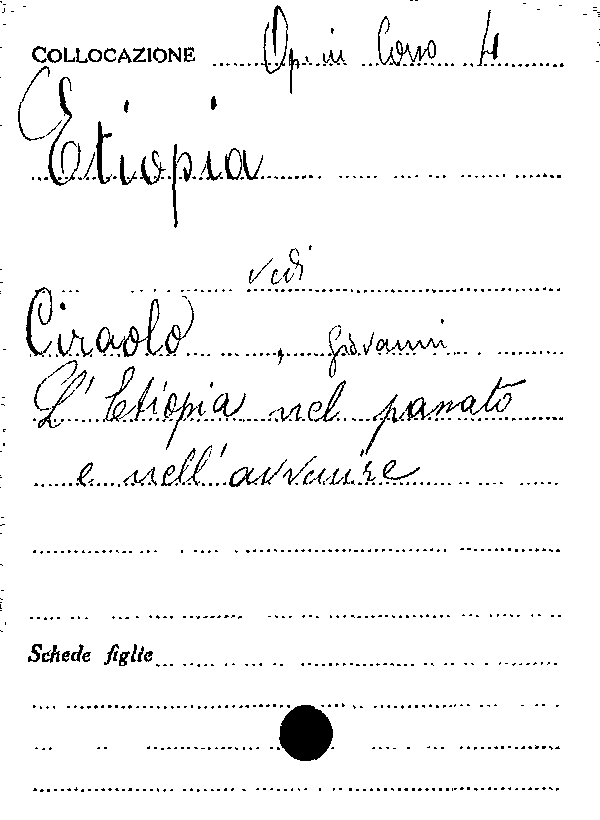 COLLOCAZIONE Op. in Corso 4
Etiopia
vedi
Ciraolo, Giovanni
L'Etiopia nel passato
e nell'avvenire
Schede figlie